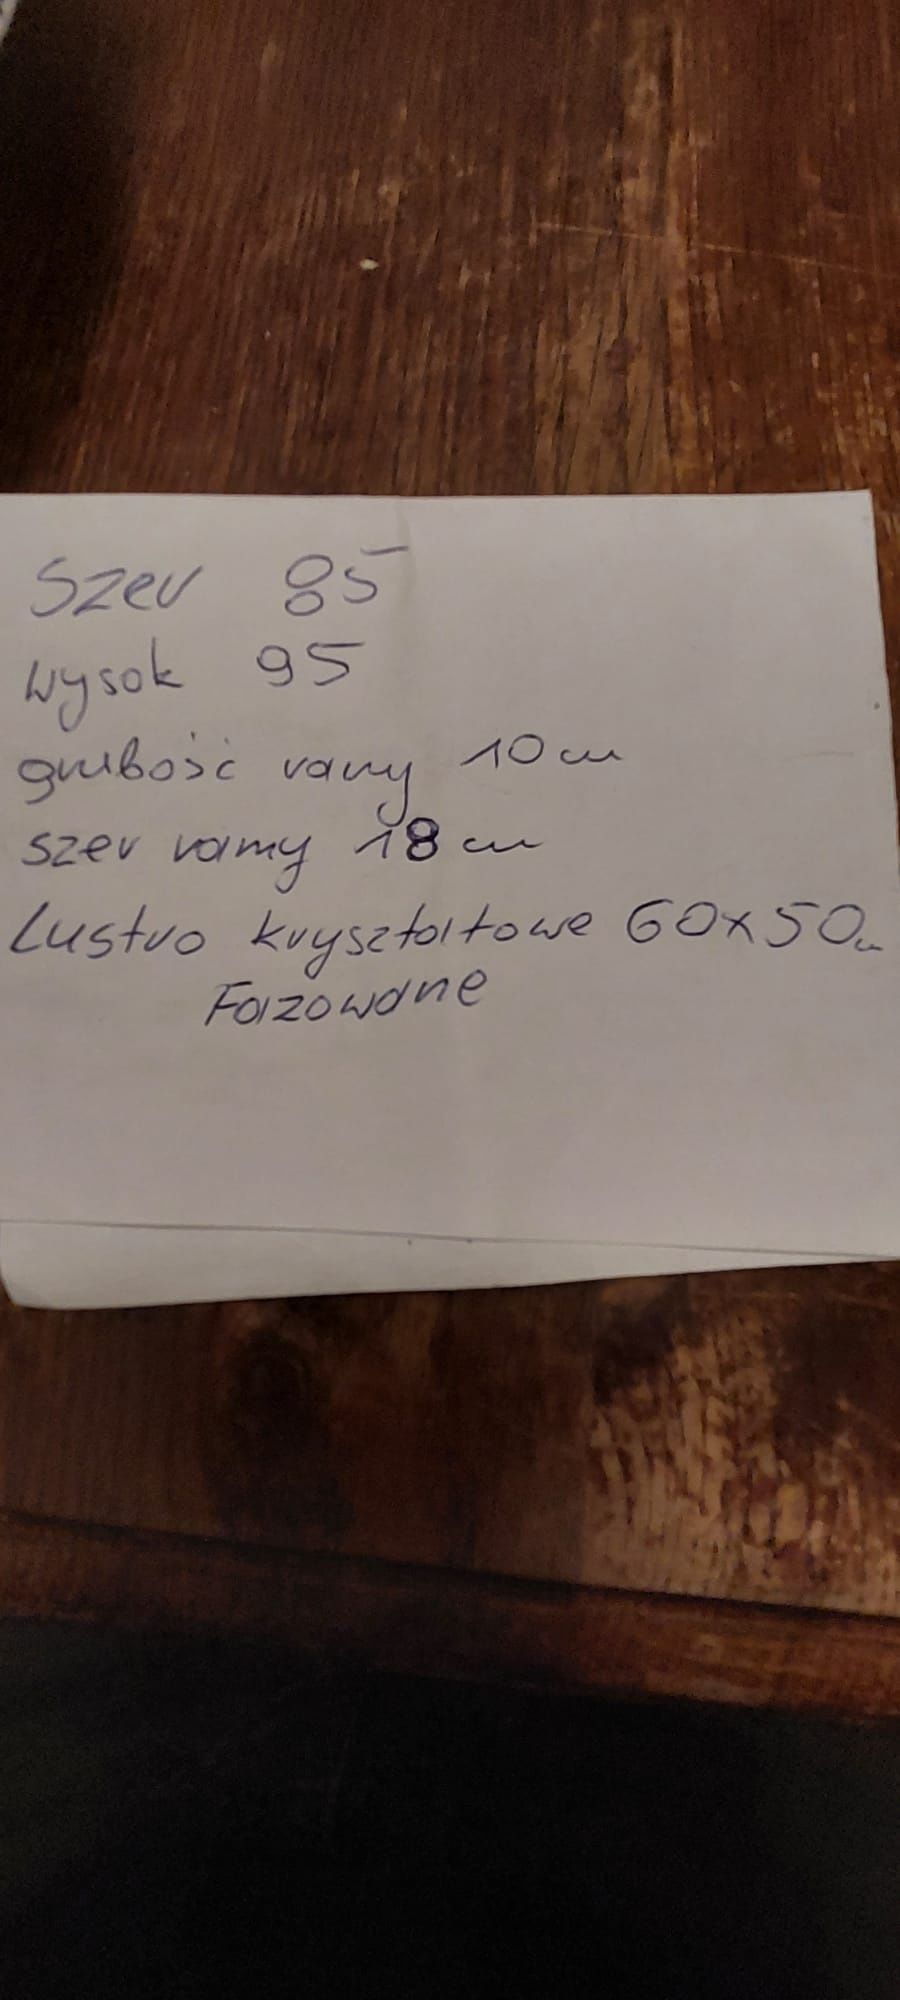 Szer 85
wysok 95
grubość ramy 10 cm
szer ramy 18 cm
Lustro kryształowe 60x50
Fazowane